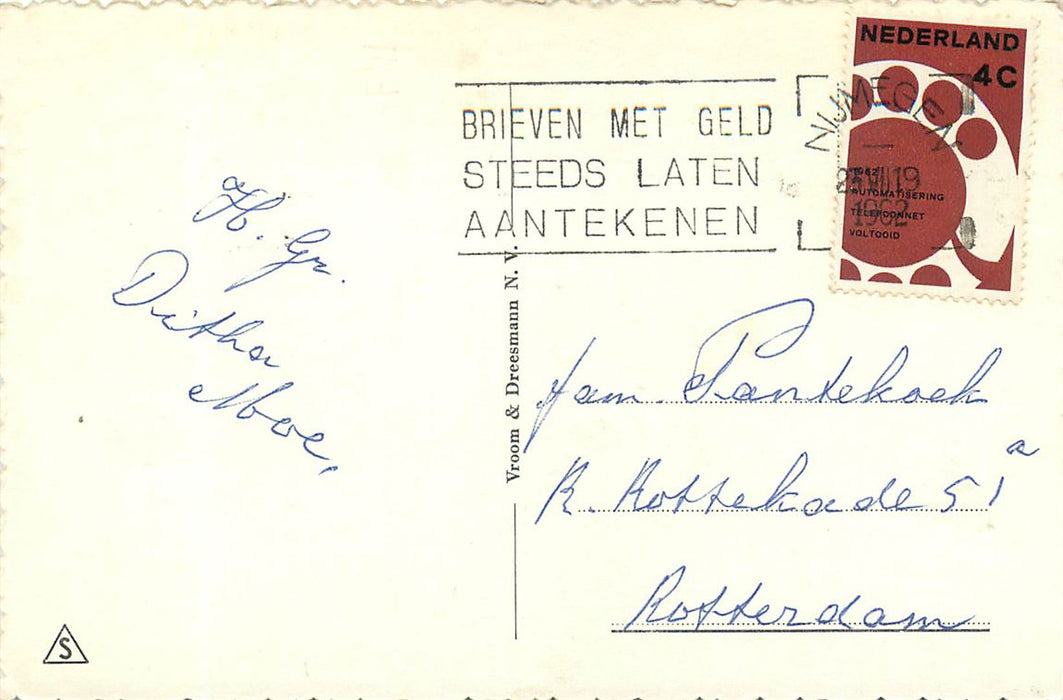 NEDERLAND
4C
BRIEVEN MET GELD
STEEDS LATEN
AANTEKENEN
NIJMEGEN
VII 19
1962
1962
AUTOMATISERING
TELEFOONNET
VOLTOOID
H. Gr.
Vroom & Dreesmann N. V.
fam. Pantekoek
R. Rottekade 51 a
Rotterdam
S